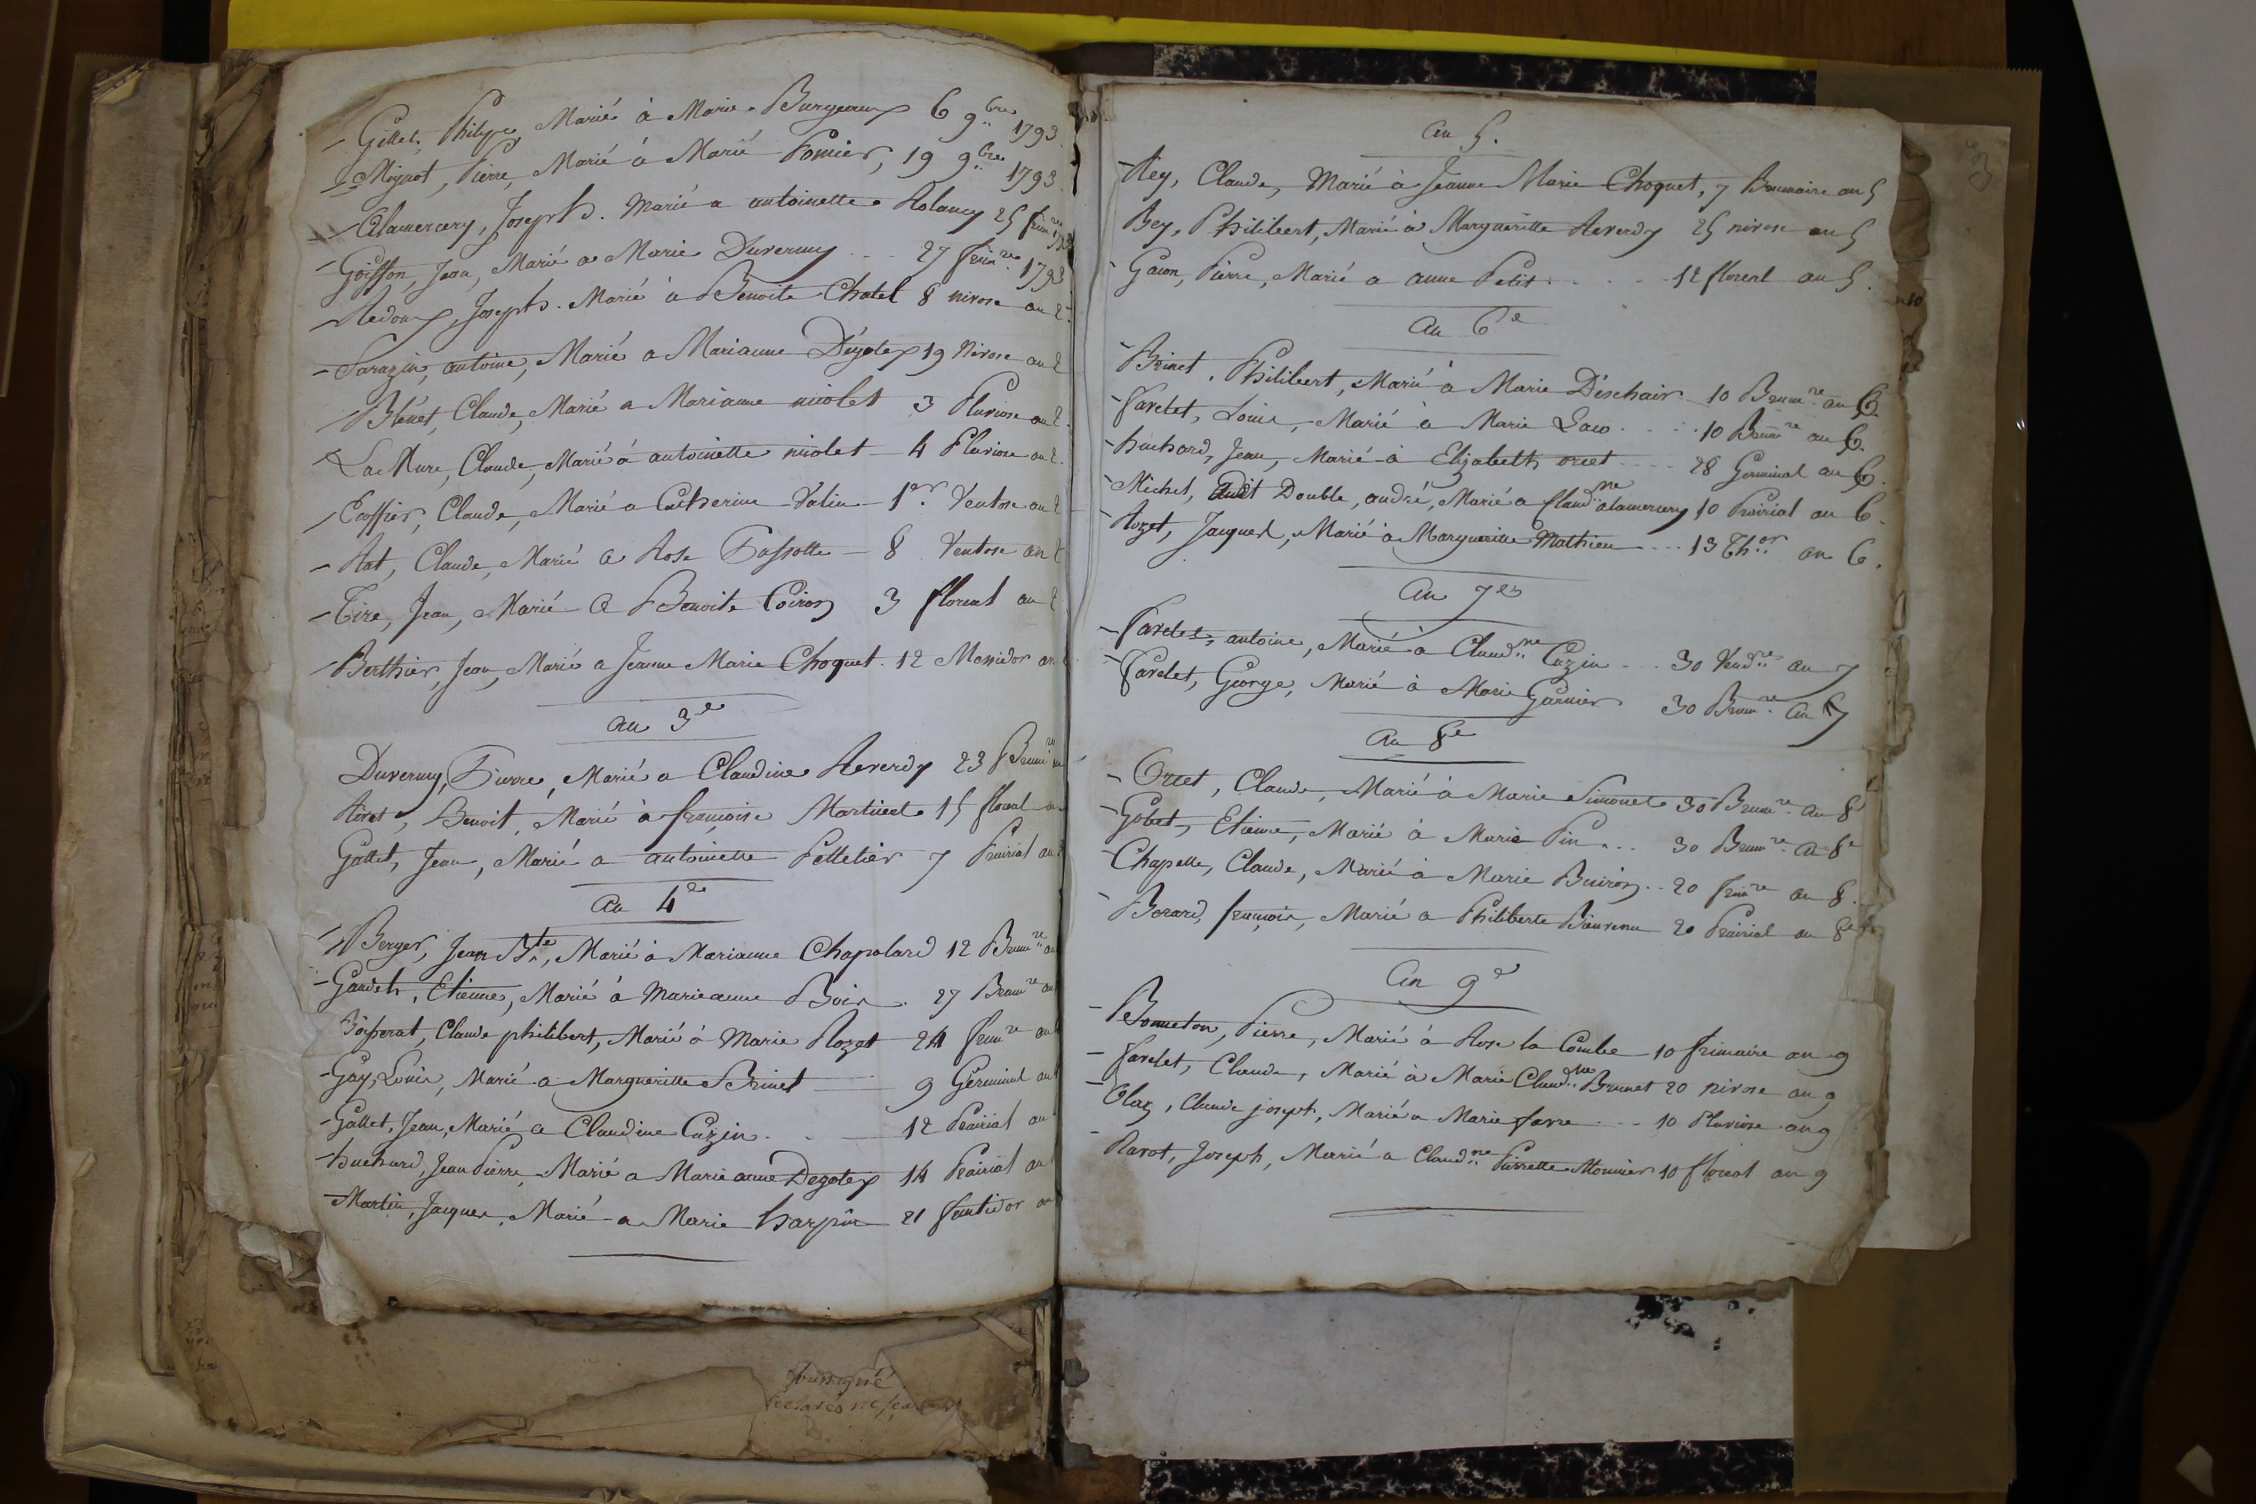 Gillet, Philipe, Marié à Marie Burgeaux 6 9bre 1793
Mignot, Pierre, Marié à Marie Pomier, 19 9bre 1793.
Alamercery, Joseph. Marié a antoinette Rolancy 25 frimre
Goiffon, Jean, Marié a Marie Duvernay 27 frimre 1793
Redoux, Joseph. Marié à Benoite Chatel 8 nivose an 2
Sarazin, antoine, Marié a Marianne Dégotex 19 Nivose an 2
Blenet, Claude, Marié a Marianne niolet 3 Pluviose an 2
La Mure, Claude, Marié à antoinette niolet 4 Pluviose an 2
Coffier, Claude, Marié a Catherine Valin 1er Ventose an 2
Rat, Claude, Marié a Rose Bassotte 8 Ventose an 2
Tire, Jean, Marié a Benoite Coiron 3 floreal an 2
Berthier, Jean, Marié a Jeanne Marie Choquet. 12 Messidor an
an 3e
Duvernay, Pierre, Marié a Claudine Reverdy 23 Brumre
Rivet, Benoit, Marié à françoise Martinet 15 floreal an
Gallet, Jean, Marié a antoinette Pelletier 7 Prairial an
an 4e
Berger, Jean Bte, Marié à Marianne Chapolard 12 Brumre an
Gaudet, Etienne, Marié à Marieanne Bois. 27 Brumre an
Josserat, Claude philibert, Marié à Marie Rozet 24 frimre an
Gay, Louis, Marié a Margueritte Brinet 9 Germinal an
Gallet, Jean, Marié a Claudine Cuzin 12 Prairial an
huchard, Jean Pierre, Marié a Marie anne Degotex 14 Prairial an
Martin, Jacques, Marié a Marie harpin 21 fructidor an
an 5.
Rey, Claude, Marié à Jeanne Marie Choquet, 7 Brumaire an 5
Bey, Philibert, Marié à Margueritte Reverdy 25 nivose an 5
Gacon, Pierre, Marié a anne Petit 12 floreal an 5.
an 6e
Brinet, Philibert, Marié à Marie Déschair 10 Brumre an 6.
favelet, Louis, Marié à Marie Laco 10 Brumre an 6.
huchard, Jean, Marié à Elizabeth orcet 28 Germinal an 6.
Michel, dit Double, andré, Marié a Claudne alamercery 10 Prairial an 6.
Rozet, Jacques, Marié à Margueritte Mathieu 13 Thor an 6.
an 7e
favelet, antoine, Marié à Claudne Cuzin 30 Vendre an 7
favelet, George, Marié à Marie Garnier 30 Brumre an 7
an 8e
Orcet, Claude, Marié à Marie Simonet 30 Brumre an 8
Gobet, Etienne, Marié à Marie Pin 30 Brumre an 8e
Chapelle, Claude, Marié à Marie Buiron 20 frimre an 8.
Berard, françois, Marié a Philiberte Bienvenu 20 Prairial an 8e
an 9e
Bonneton, Pierre, Marié à Rose la Combe 10 frimaire an 9
favelet, Claude, Marié à Marie Claudne Brunet 20 nivose an 9
Claz, Claude joseph, Marié a Marie favre 10 Pluviose an 9
Ravot, Joseph, Marié a Claudne Pierrette Monnier 10 floreal an 9
3